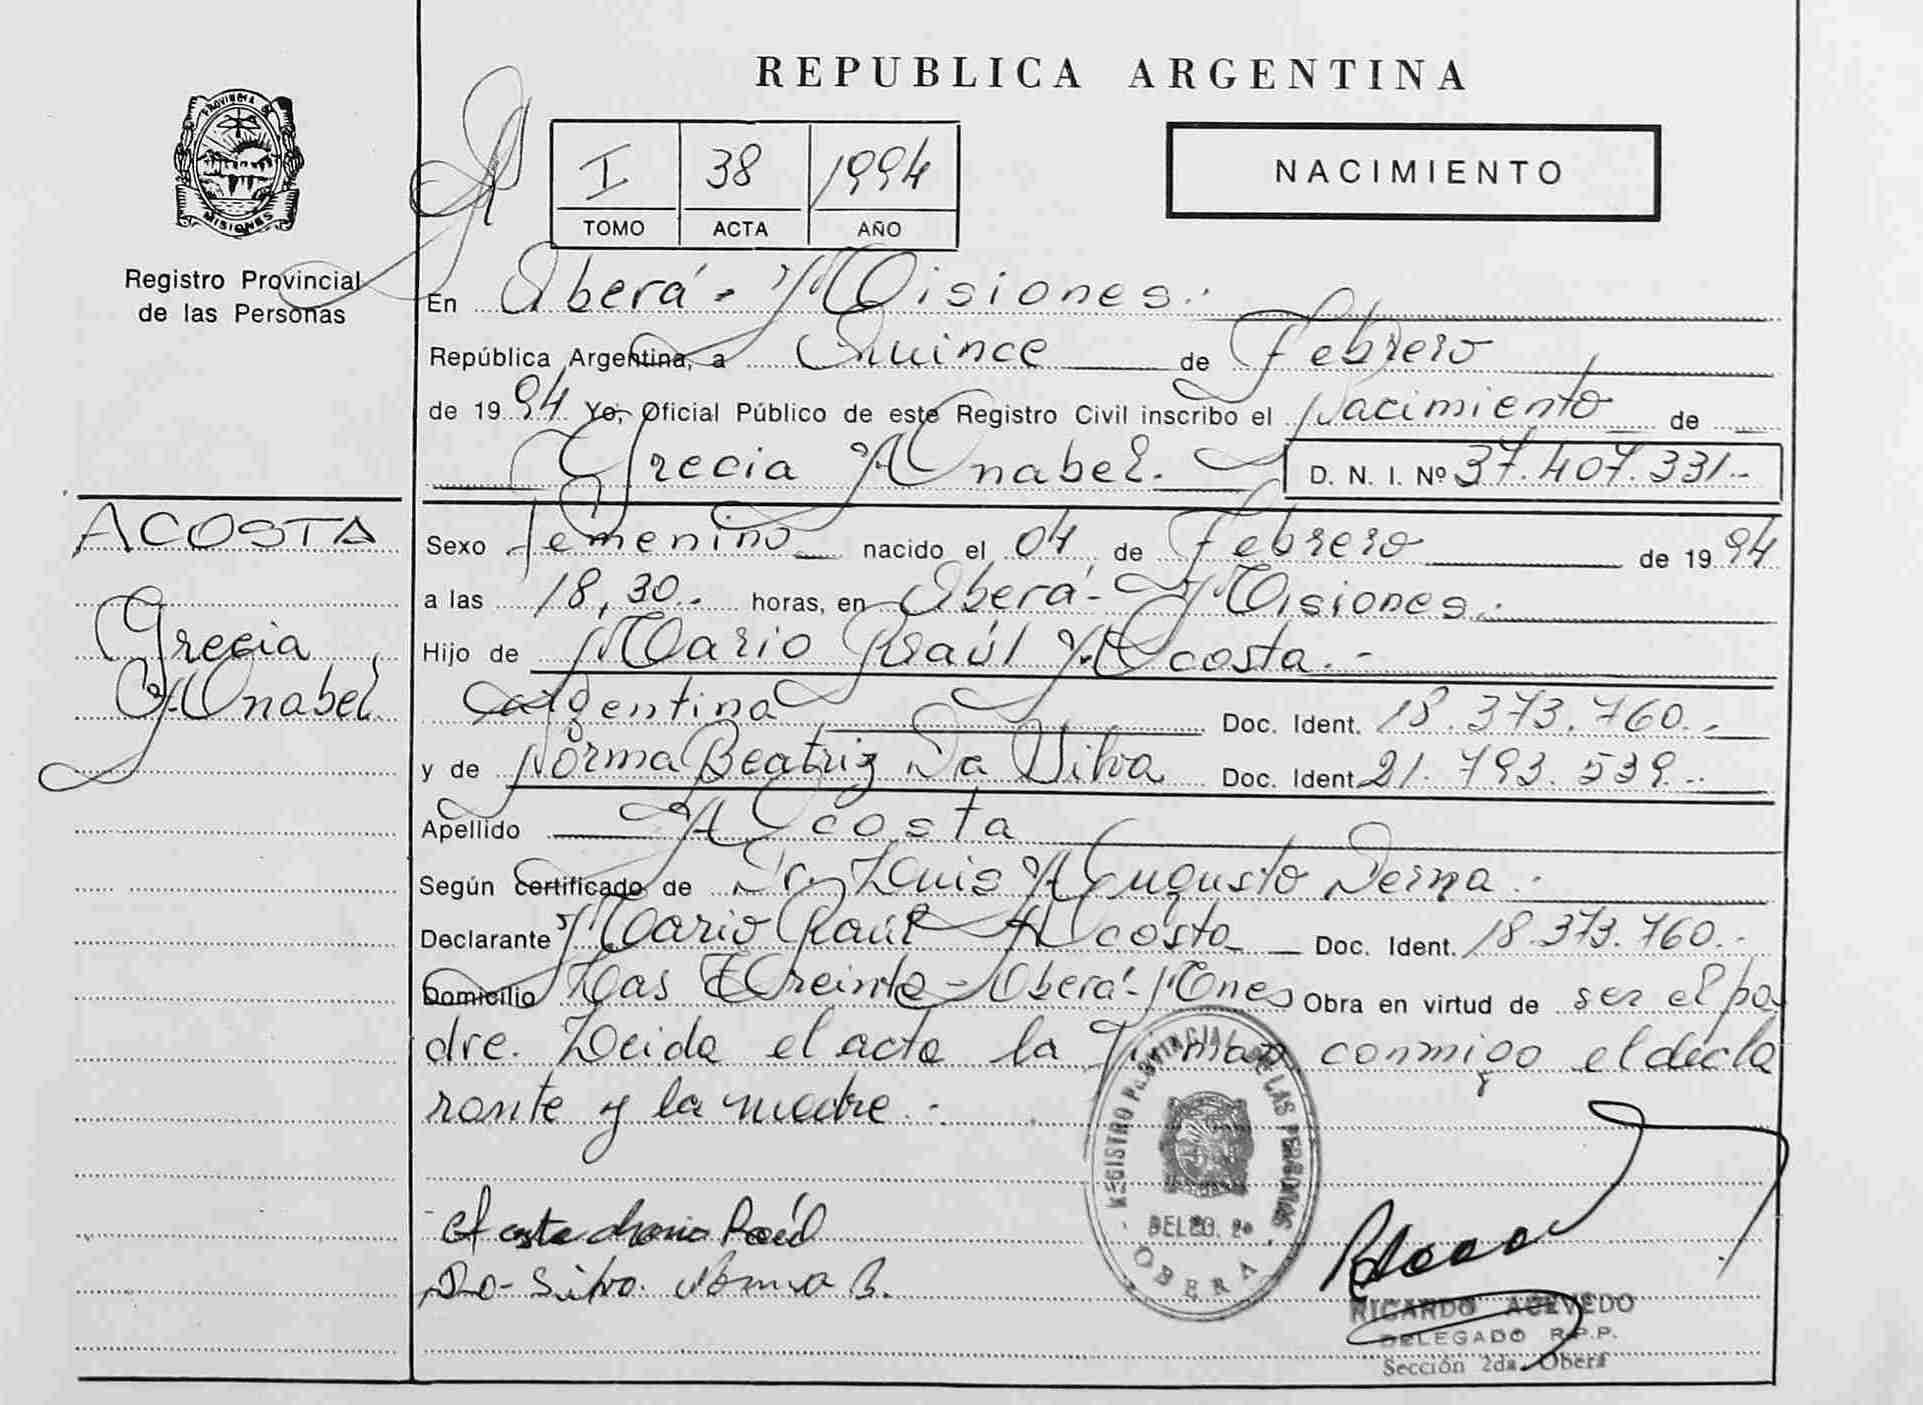 REPUBLICA ARGENTINA
PROVINCIA DE
MISIONES
Registro Provincial
de las Personas
I 38 1994
TOMO ACTA AÑO
NACIMIENTO
En Oberá - Misiones.-
República Argentina, a Quince de Febrero
de 1994 Yo, Oficial Público de este Registro Civil inscribo el Nacimiento de
Grecia Anabel.- D. N. I. Nº 37.407.331.-
ACOSTA
Grecia
Anabel
Sexo Femenino nacido el 04 de Febrero de 1994
a las 18,30.- horas, en Oberá - Misiones.-
Hijo de Mario Raúl Acosta.-
Argentina Doc. Ident. 18.373.760.-
y de Norma Beatriz Da Silva Doc. Ident. 21.793.539.-
Apellido Acosta
Según certificado de Dr. Luis Augusto Derna.-
Declarante Mario Raúl Acosta Doc. Ident. 18.373.760.-
Domicilio Las Treinta - Oberá - Mnes Obra en virtud de ser el pa
dre. Leida el acta la firman conmigo el decla
rante y la madre.-
REGISTRO PROVINCIAL DE LAS PERSONAS
DELEG. 2a
OBERA
Acosta Mario Raúl
Da Silva Norma B.
RICARDO ACEVEDO
DELEGADO R.P.P.
Sección 2da. Oberá